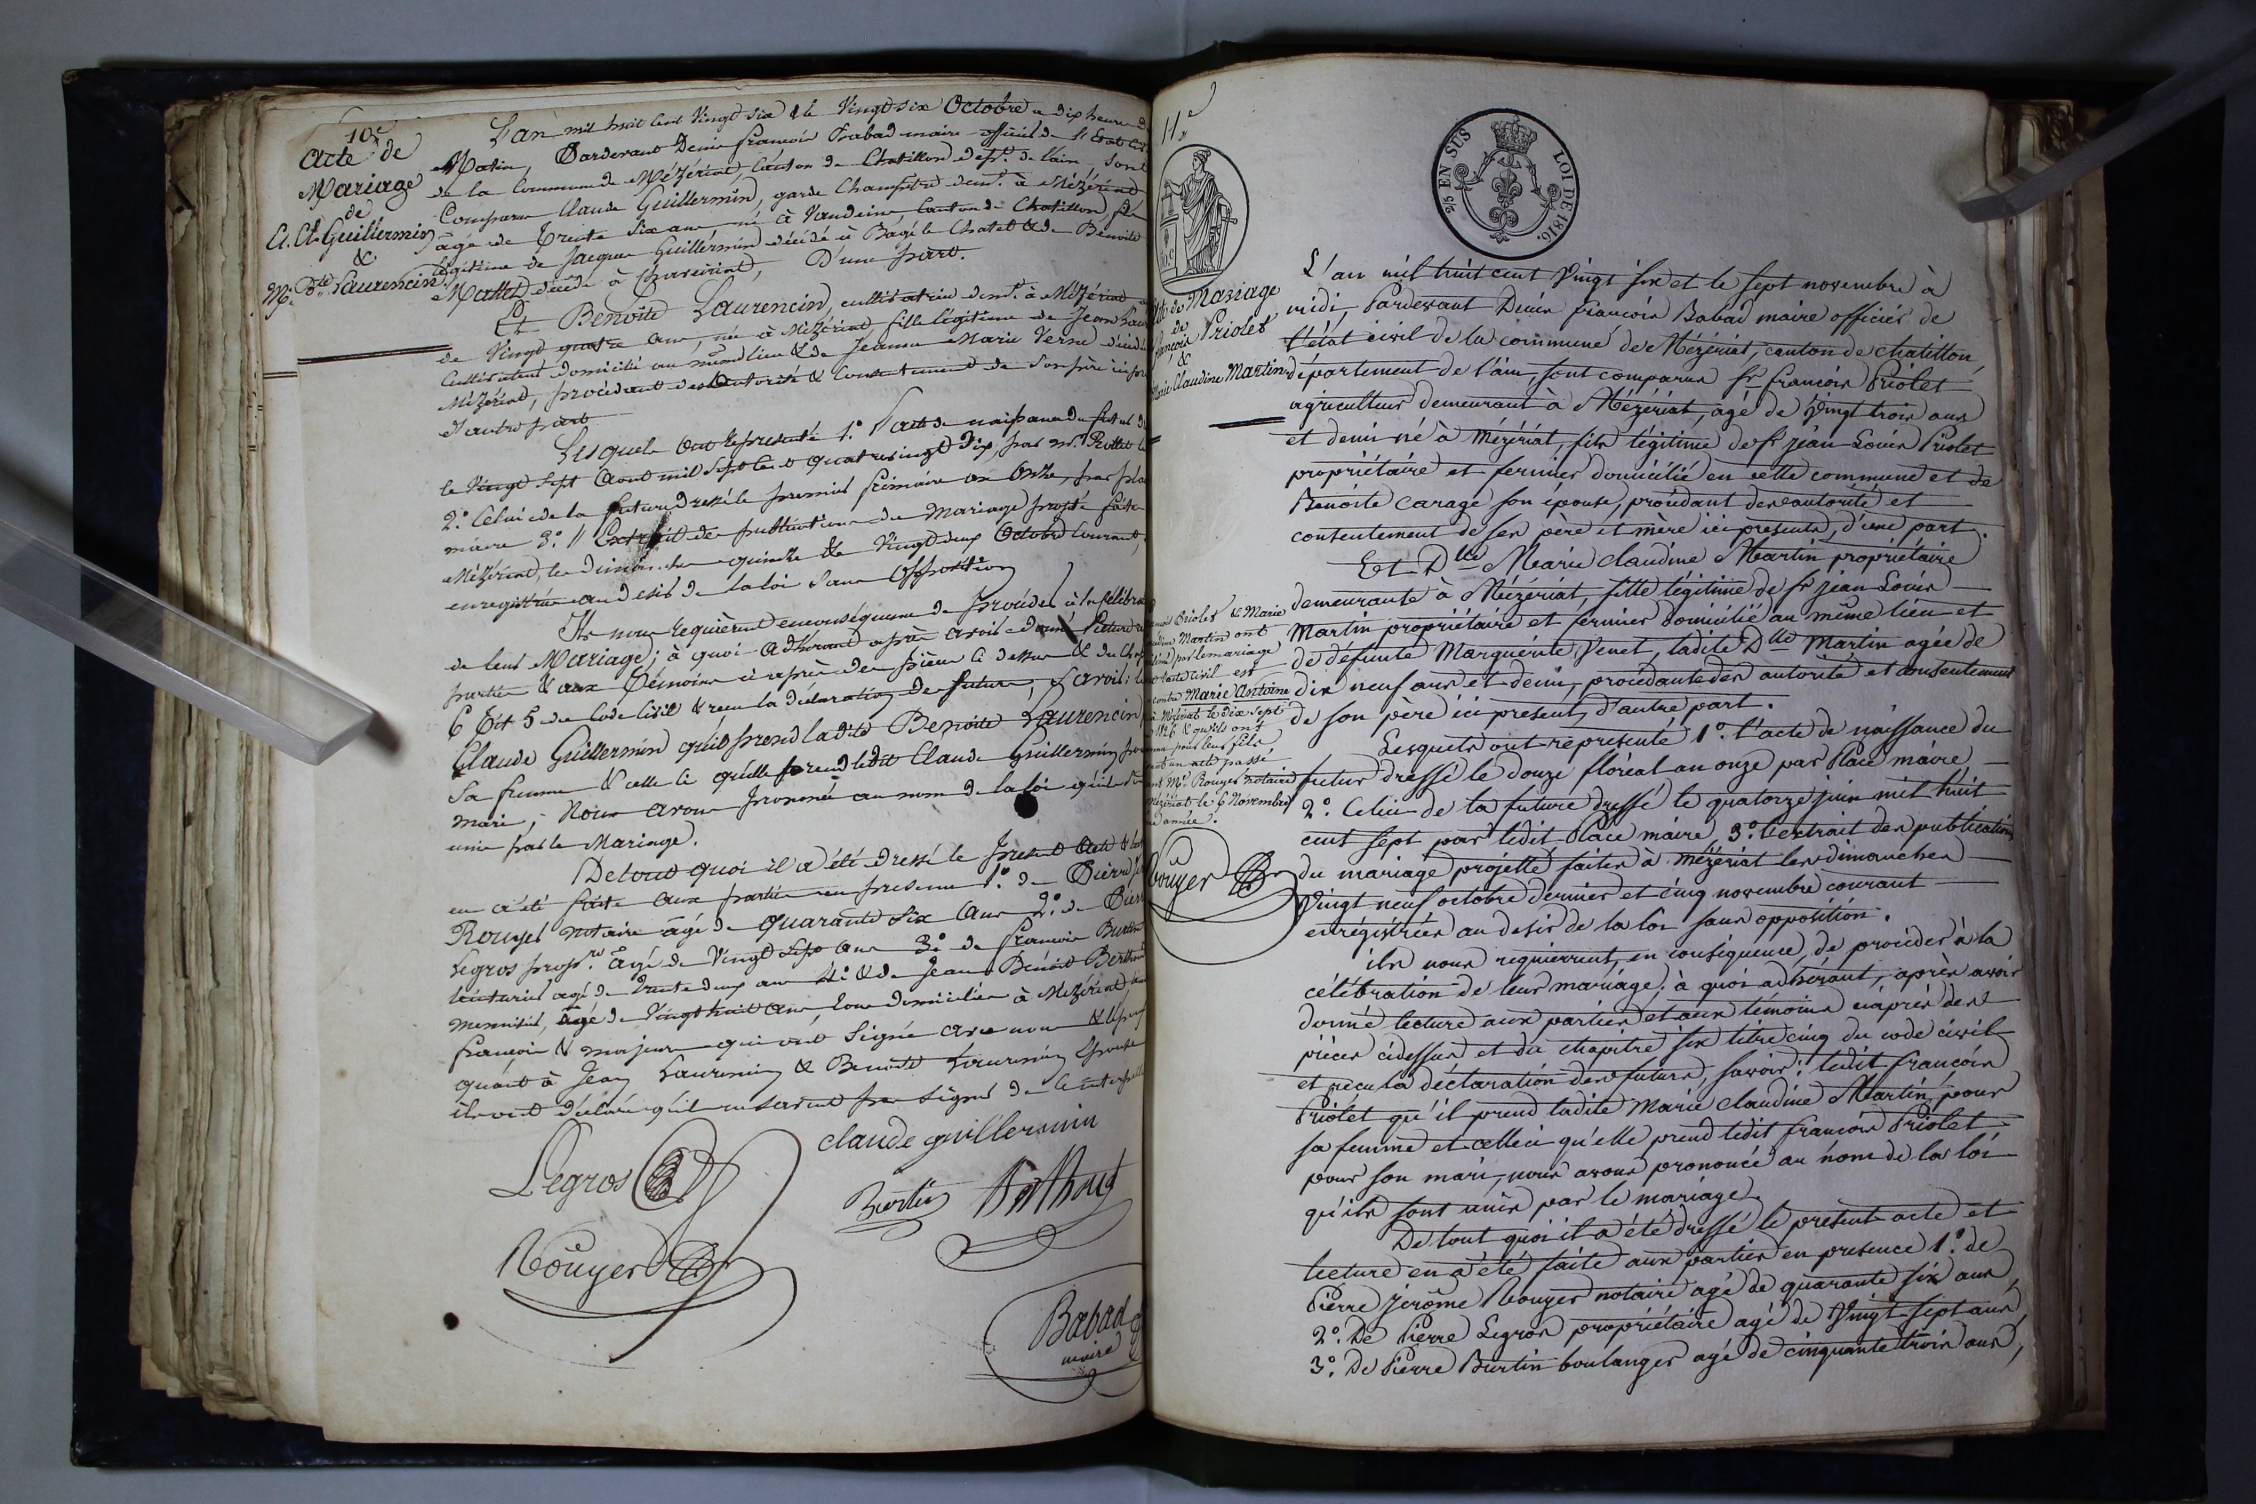 10e
Acte de
Mariage
de
Cl. Guillermin
&
M. Bte Laurencin
L'an mil huit cent Vingt six & le Vingt six Octobre a dix heures du
Matin, Pardevant Denis françois Babad maire officier de l'Etat civil
de la Commune de Mézériat, Canton de Chatillon dept. de l'ain, sont
Comparus Claude Guillermin, garde Champêtre demt. à Mézériat
âgé de Trente Six ans né à Vandeins Canton de Chatillon, fils
légitime de Jacques Guillermin décédé à Bagé le Chatel & de Benoite
Mallet décédé à Chaveiriat, D'une part.
Et Benoite Laurencin, cultivatrice demt. à Mézériat
de Vingt quatre ans, née à Mézériat, fille légitime de Jean
Cultivateur domicilié au même lieu & de Jeanne Marie Verne
Mézériat, procédant de l'autorité & Consentement de son père
d'autre part
Lesquels ont représenté 1.° l'acte de naissance du futur
le Vingt sept Aout mil Sept Cent quatrevingt dix, par mr.
2.° Celui de la future dressé le premier frimaire an Onze, par
maire 3.° L'Extrait des publications du Mariage projeté faites
Mézériat, les dimanches quinze & Vingt deux Octobre Courant,
enregistrées au desir de la loi sans Opposition
Ils nous requièrent en conséquence de procéder à la
de leur Mariage; à quoi adhérant après avoir donné lecture
parties & aux Témoins ci après des pièces ci dessus & du
6 Tit 5 du Code Civil & reçu la déclaration des futurs, savoir:
Claude Guillermin qu'il prend ladite Benoite Laurencin
Sa femme & celle ci qu'elle prend ledit Claude Guillermin
mari, Nous avons prononcé au nom de la loi qu'ils sont
unis par le Mariage.
De tout quoi il a été dressé le présent Acte &
en a été faite aux parties en présence 1.° de Pierre
Rouyer notaire âgé de quarante Six ans 2.° de
Legros propre. âgé de Vingt Sept ans 3.° de françois Burtin
âgé de Trente deux ans 4.° & de Jean Benoit Berthoud
menuisier, âgé de Vingt huit ans, tous domiciliés à Mézériat,
français & majeurs qui ont Signé avec nous &
quant à Jean Laurencin & Benoite Laurencin
ils ont déclaré qu'ils ne savent pas signer de ce
claude guillermin
Legros
Burtin Berthoud
Rouyer
Babad
maire
11e
2/5 EN SUS LOI DE 1816.
de Mariage
de
Priolet
&
Marie Claudine Martin
Priolet & Marie
Martin ont
par le mariage
civil est
Marie Antoine
Mézériat le dix Sept
1826 & qu'ils ont
pour leur fils
un acte passé
Me. Rouyer notaire
Mézériat le 6 Novembre
année.
Rouyer
L'an mil huit cent Vingt six et le sept novembre à
midi, Pardevant Denis françois Babad maire officier de
l'état civil de la commune de Mézériat, canton de chatillon
département de l'ain, sont comparus Sr. françois Priolet
agriculteur demeurant à Mézériat, agé de Vingt trois ans
et demi né à Mézériat, fils légitime de Sr. jean Louis Priolet
propriétaire et fermier domicilié en cette commune et de
Benoite Carage son épouse, procédant de l'autorité et
consentement de ses père et mère ici presents, d'une part.
Et Dlle Marie claudine Martin propriétaire
demeurante à Mézériat, fille légitime de Sr. jean Louis
Martin propriétaire et fermier domicilié au même lieu et
de défunte Marguérite Venet, ladite Dlle Martin agée de
dix neuf ans et demi, procédante des autorité et consentement
de son père ici present, d'autre part.
Lesquels ont représenté 1.° l'acte de naissance du
futur dressé le douze floréal an onze par Place maire
2.° Celui de la future dressé le quatorze juin mil huit
cent sept par ledit Place maire, 3.° l'extrait des publications
du mariage projetté faites à mézériat les dimanches
Vingt neuf octobre dernier et cinq novembre courant
enrégistrées au desir de la loi sans opposition.
ils nous requierrent, en conséquence, de procéder à la
célébration de leur mariage; à quoi adhérant, après avoir
donné lecture aux parties et aux témoins ciaprès des
pièces cidessus et du chapitre six titre cinq du code civil
et reçu la déclaration des futurs, savoir: ledit françois
Priolet qu'il prend ladite Marie claudine Martin pour
sa femme et celleci qu'elle prend ledit françois Priolet
pour son mari, nous avons prononcé au nom de la loi
qu'ils sont unis par le mariage.
De tout quoi il a été dressé le présent acte et
lecture en a été faite aux parties en presence 1.° de
Pierre jérôme Rouyer notaire agé de quarante six ans,
2.° De Pierre Legros propriétaire agé de Vingt sept ans,
3.° De Pierre Burtin boulanger agé de cinquante trois ans,